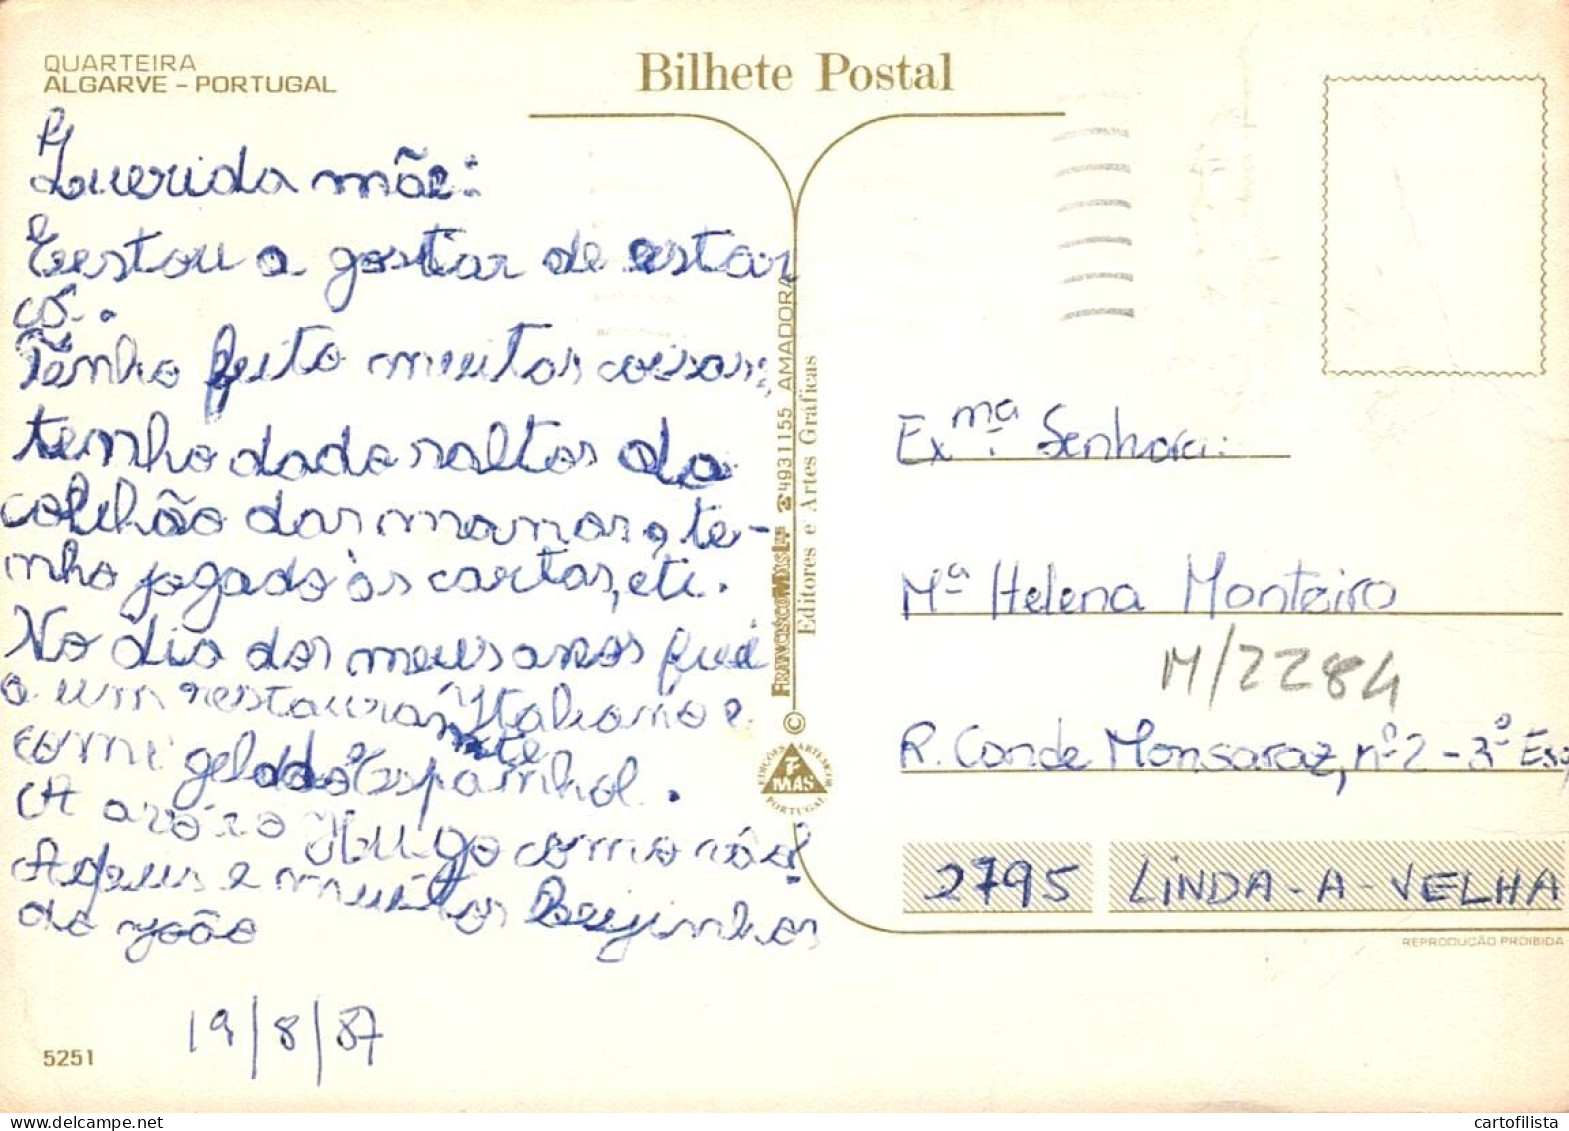 QUARTEIRA
ALGARVE - PORTUGAL
Bilhete Postal
Querida mãe:
Eestou a gostar de estar
cá.
Tenho feito muitas coisas:
tenho dado saltos do
colchão das manas, te-
nho jogado às cartas, etc.
No dia dos meus anos fui
a um restaurante Italiano e
comi gelado Espanhol.
Hugo como
Adeus e muitos Beijinhos
do João
19/8/87
5251
FRANCISCO MAS Lda 4931155 AMADORA
Editores e Artes Gráficas
©
EDIÇÕES ARTES
F
MAS
PORTUGAL
Exmª. Senhora:
Mª Helena Monteiro
M/2284
R. Conde Monsaraz, nº 2 - 3º Esq
2795 LINDA-A-VELHA
REPRODUÇÃO PROIBIDA
cartofilista